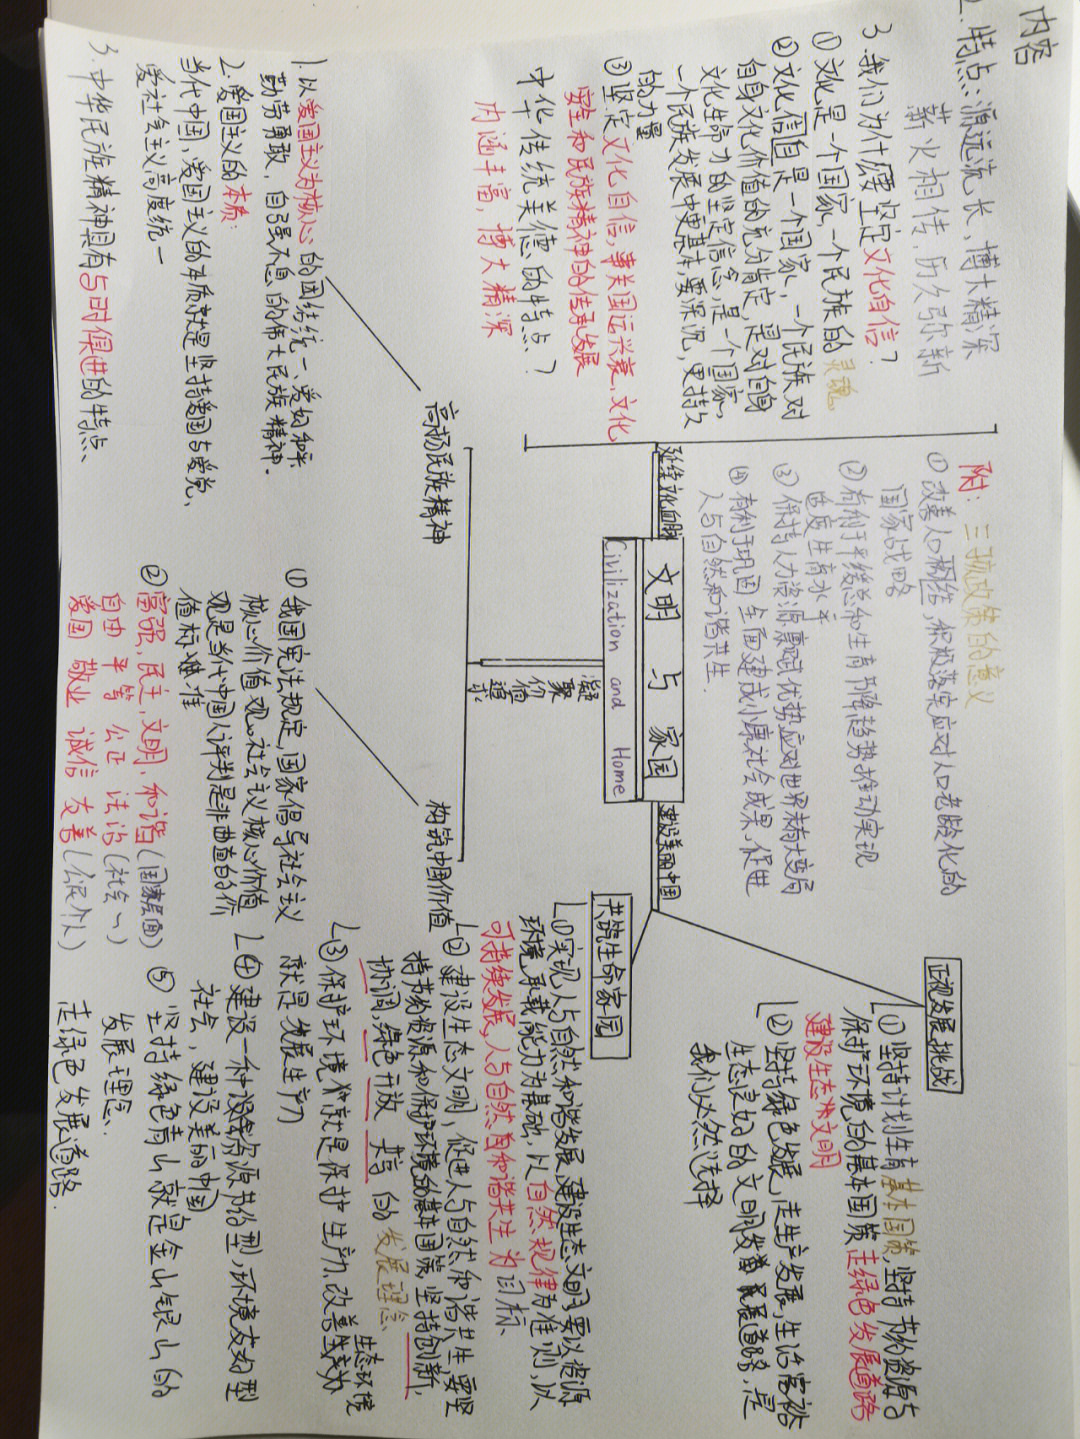 内容
2.特点：源远流长，博大精深
薪火相传，历久弥新
3.我们为什么要坚定文化自信？
①文化是一个国家，一个民族的灵魂。
②文化信自是一个国家，一个民族对
自身文化价值的充分肯定，是对自身
文化生命力的坚定信念，是一个国家，
一个民族发展中更基本，更深沉，更持久
的力量
③坚定文化自信，事关国运兴衰，文化
安全和民族精神的传承发展
中华传统美德的特点？
内涵丰富，博大精深
延续文化血脉
附：三孩政策的意义
①改善人口结构，积极落实应对人口老龄化的
国家战略
②有利于平缓总和生育率下降趋势推动实现
适度生育水平
③保持人力资源禀赋优势应对世界未有大变局
④有利于巩固全面建成小康社会成果，促进
人与自然和谐共生.
文明与家园
Civilization and Home
凝聚价值追求
高扬民族精神
1.以爱国主义为核心的团结统一、爱好和平
勤劳勇敢、自强不息的伟大民族精神.
2.爱国主义的本质:
当代中国，爱国主义的本质就是坚持爱国与爱党、
爱社会主义高度统一
3.中华民族精神具有与时俱进的特点、
构筑中国价值
①我国宪法规定，国家倡导社会主义
核心价值观。社会主义核心价值
观是当代中国人评判是非曲直的价
值标准
②富强，民主，文明，和谐(国家层面)
自由 平等 公正 法治(社会一)
爱国 敬业 诚信 友善(公民个人)
建设美丽中国
正视发展挑战
①坚持计划生育基本国策，坚持节约资源与
保护环境的基本国策走绿色发展道路
建设生态文明
②坚持绿色发展，走生产发展，生活富裕
生态良好的文明发展道路，是
我们必然选择
共筑生命家园
①实现人与自然和谐发展，建设生态文明要以资源
环境承载能力为基础，以自然规律为准则，以
可持续发展，人与自然和谐共生为目标、
②建设生态文明，促进人与自然和谐共生要坚
持节约资源和保护环境的基本国策，坚持创新，
协调，绿色开放 共享的发展理念、
③保护环境就是保护生产力、改善生态环境
就是发展生产力
④建设一种资源节约型，环境友好型
社会，建设美丽中国
⑤坚持绿色青山就是金山银山的
发展理念.
走绿色发展道路.